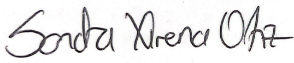 Sandra Ximena Ortiz